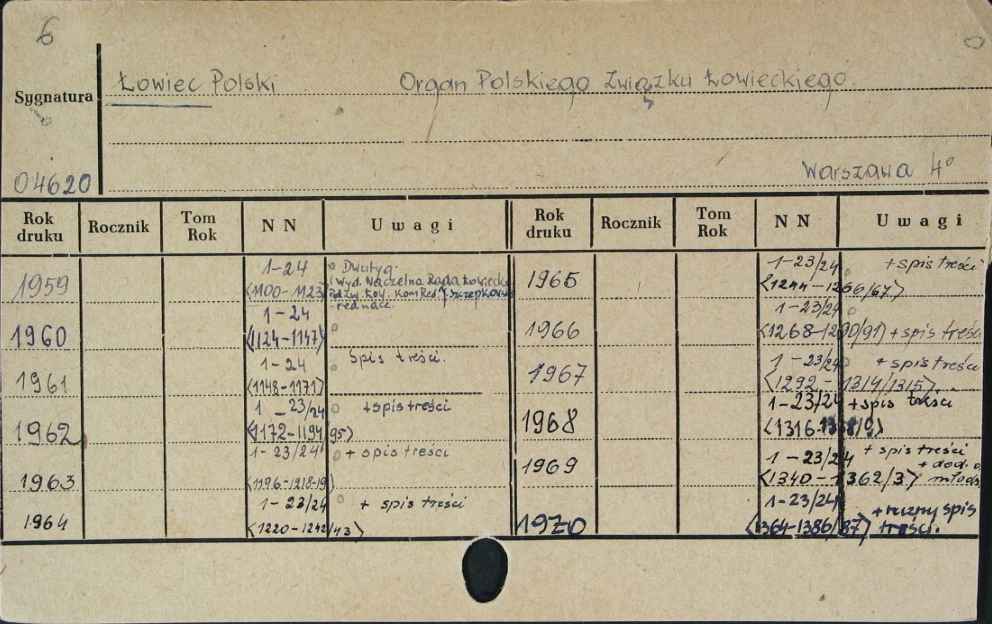 6
Łowiec Polski Organ Polskiego Związku Łowieckiego
Sygnatura
04620
Warszawa 4°
Rok druku Rocznik Tom Rok NN Uwagi Rok druku Rocznik Tom Rok NN Uwagi
1959 1-24 <1100-1123> Dwutyg. Wyd. Naczelna Rada Łowiecka
1960 1-24 <1124-1147>
1961 1-24 <1148-1171> Spis treści.
1962 1-23/24 <1172-1194/95> +spis treści
1963 1-23/24 <1196-1218-19> + spis treści
1964 1-23/24 <1220-1242/43> + spis treści
1965 1-23/24 <1244-1266/67> +spis treści
1966 1-23/24 <1268-1290/91> +spis treści
1967 1-23/24 <1292-1314/1315> +spis treści
1968 1-23/24 <1316-1338/9> +spis treści
1969 1-23/24 <1340-1362/3> +spis treści + dod.
1970 1-23/24 <1364-1386/87> +roczny spis treści.